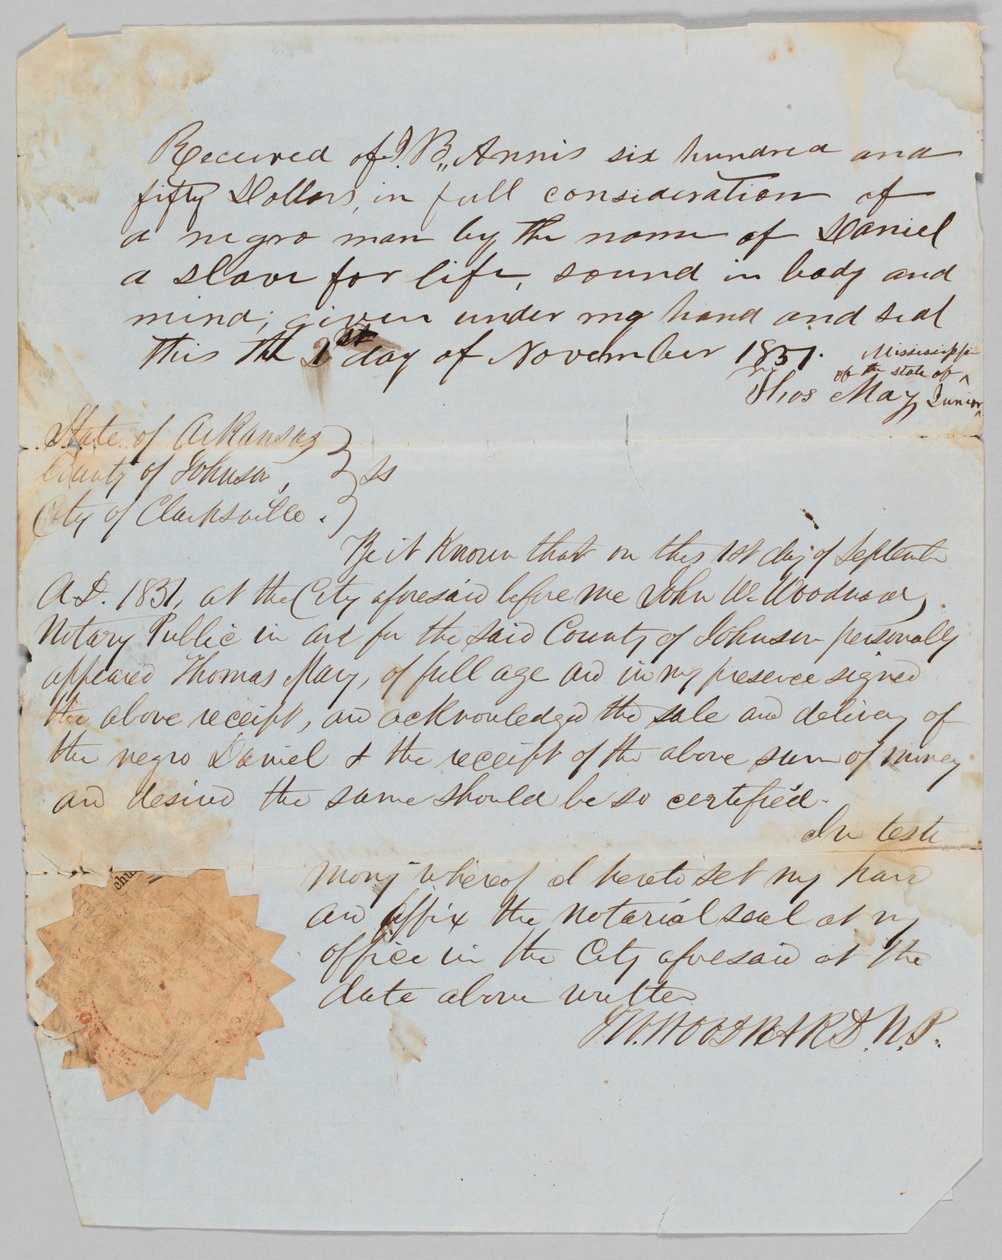 Received of J. B. Annis six hundred and
fifty Dollars, in full consideration of
a negro man by the name of Daniel
a slave for life, sound in body and
mind; given under my hand and seal
this the 1st day of November 1831.
Mississippi
of the state of
Thos May, Junior
State of Arkansas
County of Johnson, ss
City of Clarksville.
Be it Known that on this 1st day of September
A.D. 1831, at the City aforesaid before me John W. Woodward,
Notary Public in and for the said County of Johnson personally
appeared Thomas May, of full age and in my presence signed
the above receipt, and acknowledged the sale and delivery of
the negro Daniel & the receipt of the above sum of money
and desired the same should be so certified.
In testi
mony whereof I hereto set my hand
and affix the notarial seal at my
office in the City aforesaid at the
date above written
J.W. WOODWARD. N.P.